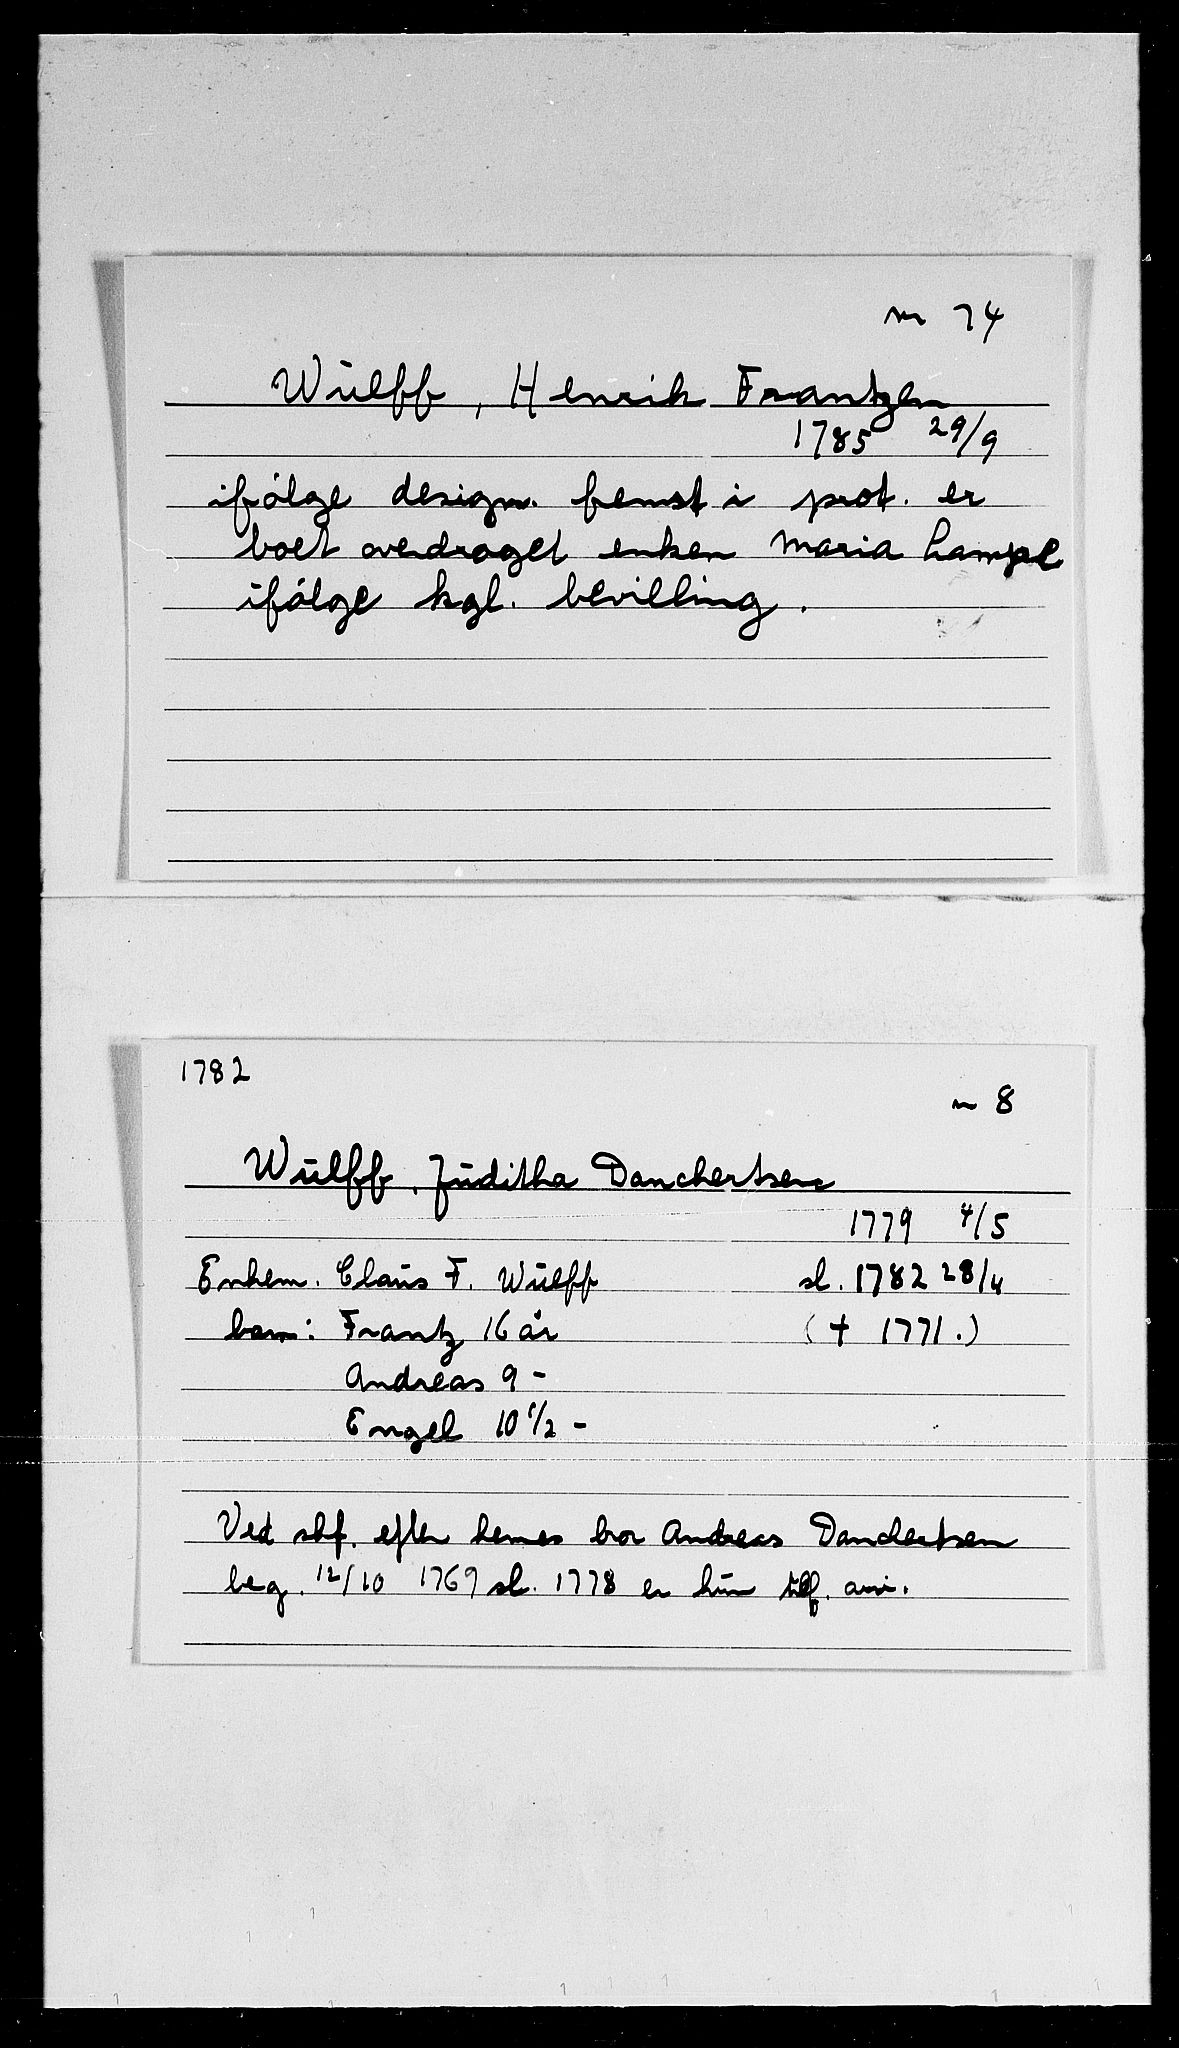 nr 74
Wülff, Henrik Frantzen
1785 29/9
ifølge design. fremst i prot. er
boet overdraget enken Maria Lampe
ifølge kgl. bevilling.
1782
nr 8
Wülff, Jüditha Danchertsen
1779 4/5
Enkem. Claüs F. Wülff sl. 1782 28/4
barn: Frantz 16 år († 1771.)
Andreas 9 -
Engel 10 1/2 -
Ved skf. efter hennes bror Andreas Danchertsen
beg. 12/10 1769 sl. 1778 er hün tilf. arv.